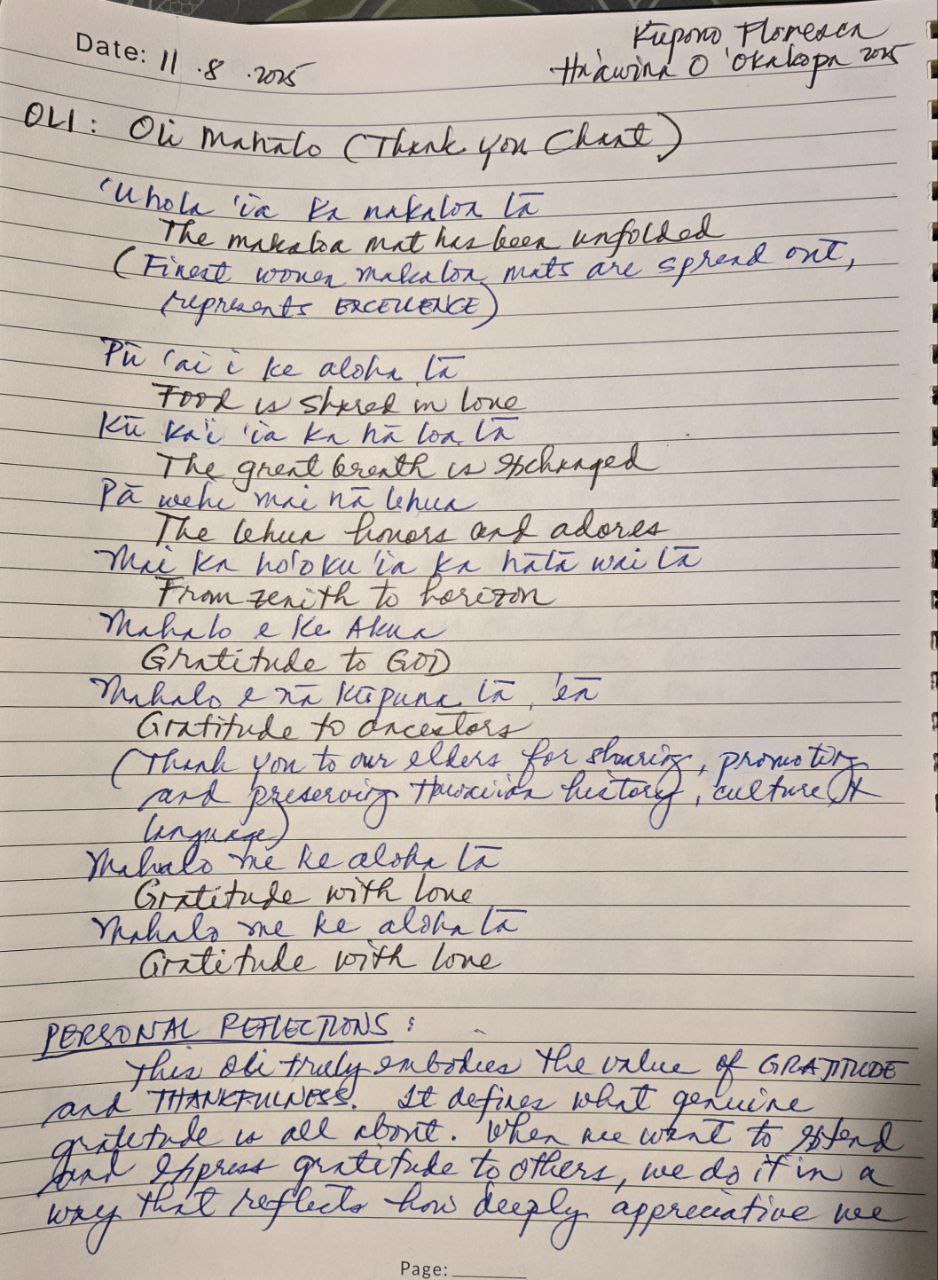 Date: 11 . 8 . 2025
Kūpono Floresca
Ha'awina O 'Okakopa 2025
OLI: Oli Mahalo (Thank you Chant)
'Uhola 'ia ka makaloa lā
The makaloa mat has been unfolded
(Finest woven makaloa mats are spread out,
represents EXCELLENCE)
Pū 'ai i ke aloha lā
Food is shared in love
Kū ka'i 'ia ka hā loa lā
The great breath is exchanged
Pā wehi mai nā lehua
The lehua honors and adores
Mai ka ho'oku 'ia ka hālā wai lā
From zenith to horizon
Mahalo e Ke Akua
Gratitude to GOD
Mahalo e nā kūpuna lā, 'eā
Gratitude to ancestors
(Thank you to our elders for sharing, promoting
and preserving Hawaiian history, culture &
language)
Mahalo me ke aloha lā
Gratitude with love
Mahalo me ke aloha lā
Gratitude with love
PERSONAL REFLECTIONS:
This Oli truly embodies the value of GRATITUDE
and THANKFULNESS. It defines what genuine
gratitude is all about. When we want to extend
and express gratitude to others, we do it in a
way that reflects how deeply appreciative we
Page: